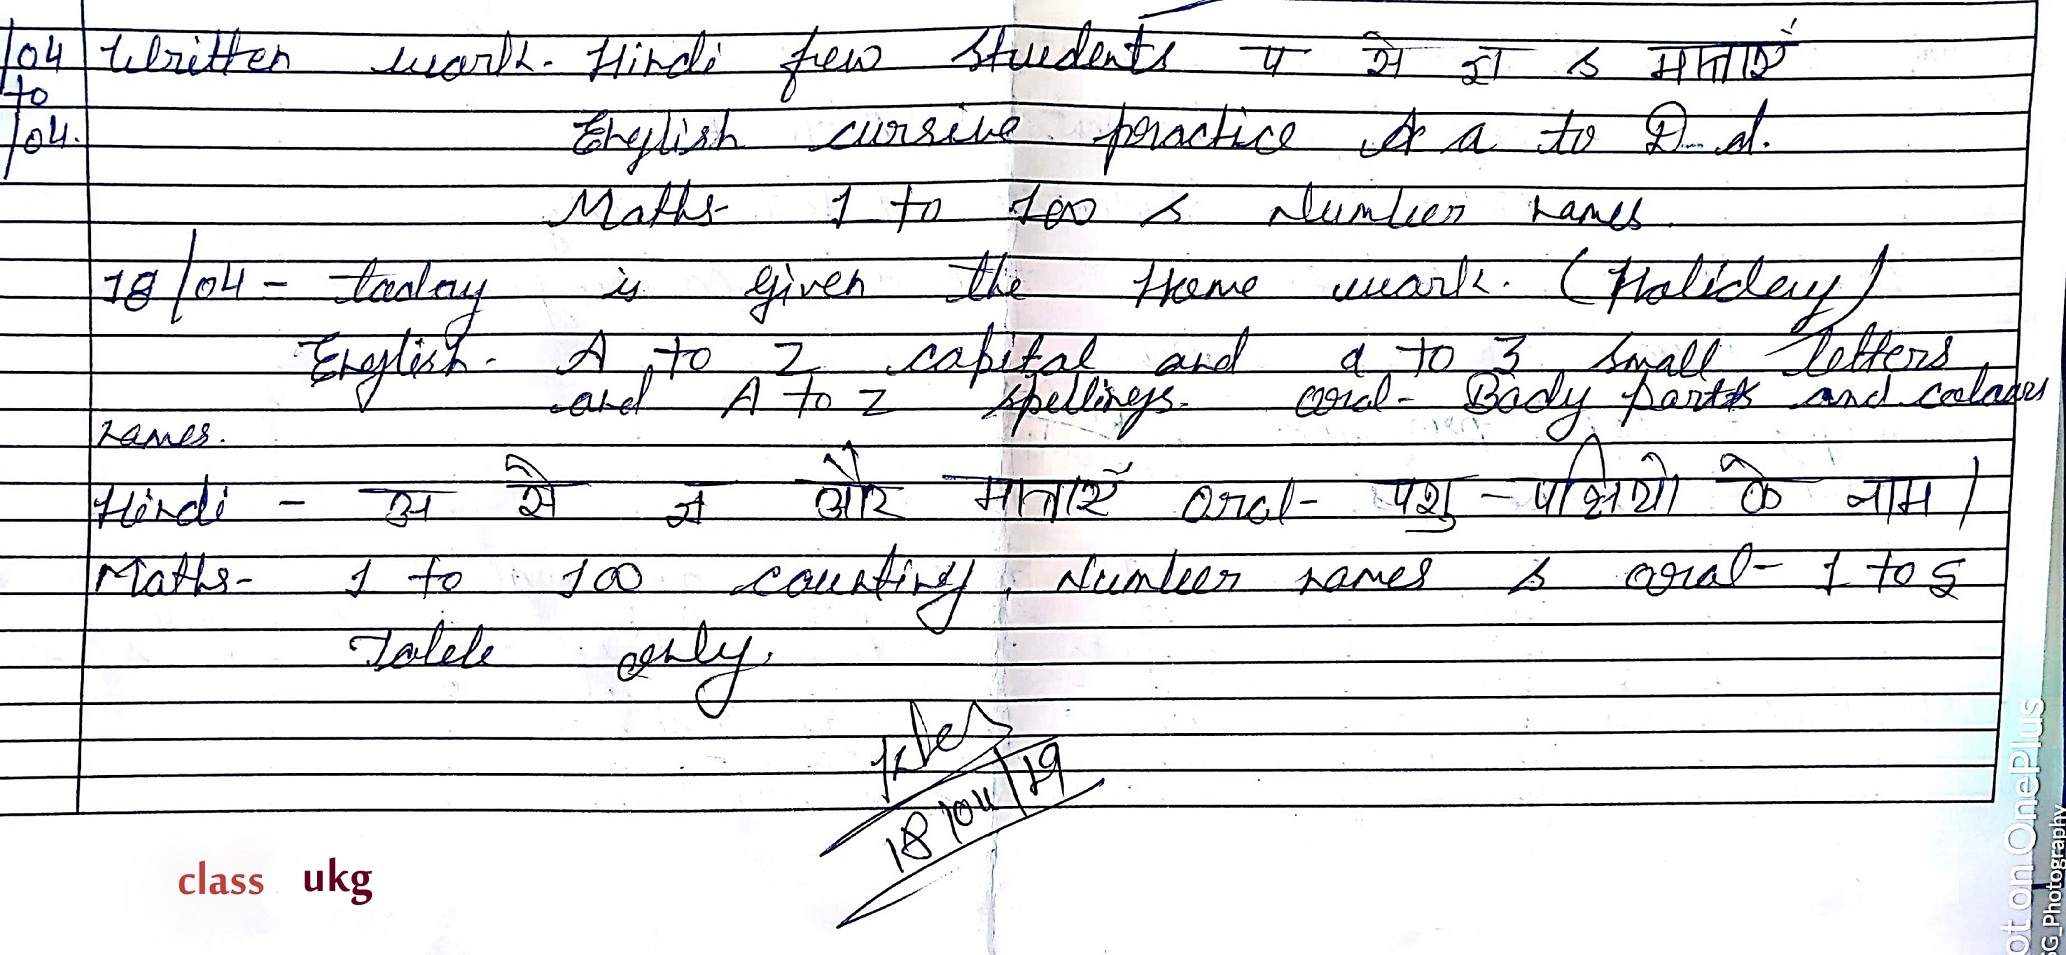 /04 Written work- Hindi few students प से ज्ञ & मात्राएँ
to
/04. English cursive practice A a to D d.
Maths- 1 to 100 & Number names.
18/04- today is given the Home work. (Holiday)
English- A to Z capital and a to z small letters
and A to Z spellings. oral- Body parts and colours
names.
Hindi - अ से ज्ञ और मात्राएँ oral- पशु-पक्षियों के नाम।
Maths- 1 to 100 counting, Number names & oral- 1 to 5
Table only.
18/04/19
class ukg
ot on OnePlus
SG_Photography